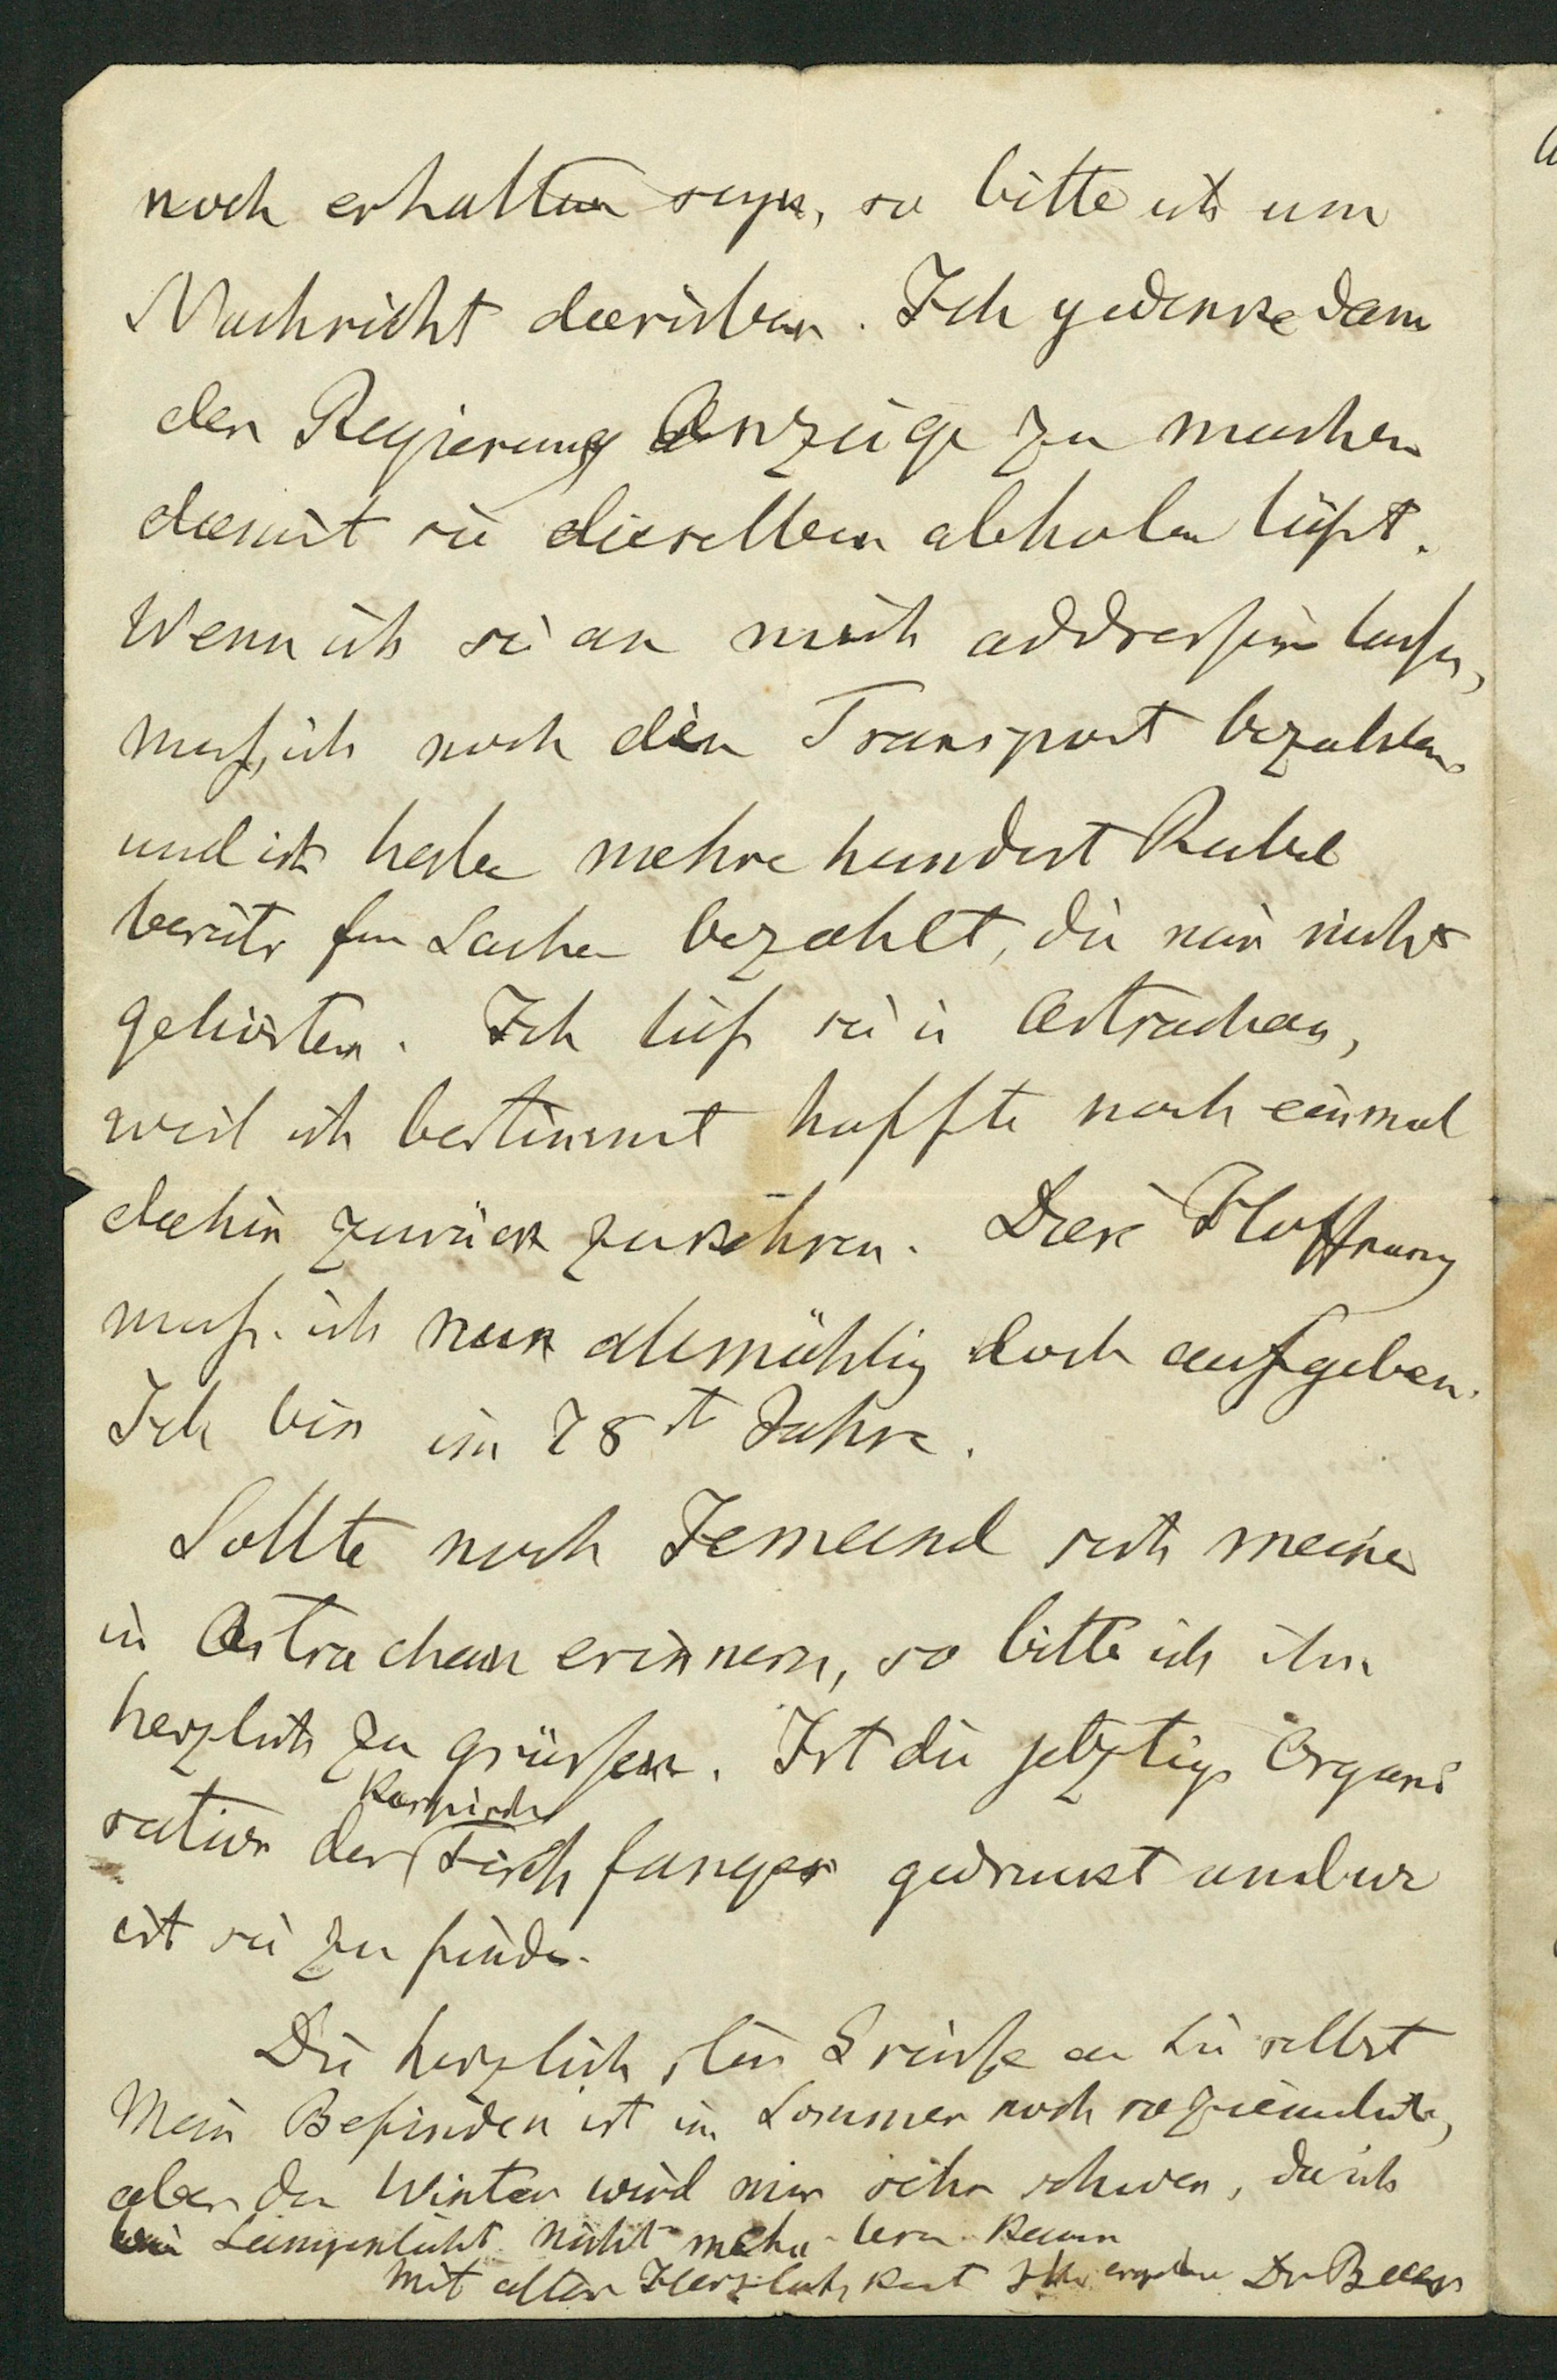 noch erhalten seyn, so bitte ich um
Nachricht darüber. Ich gedenke dann
der Regierung Anzeige zu machen
damit sie dieselben abholen läßt.
Wenn ich sie an mich addressiren lasse,
muß ich noch den Transport bezahlen
und ich habe mehre hundert Rubel
bereits für Sachen bezahlt, die mir nicht
gehörten. Ich ließ sie in Astrachan,
weil ich bestimmt hoffte noch einmal
dahin zurück zukehren. Diese Hoffnung
muß ich nun allmählig doch aufgeben.
Ich bin im 78st Jahre.
Sollte noch Jemand sich meiner
in Astrachan erinnern, so bitte ich ihn
herzlich zu grüssen. Ist die jetztige Organi
Kaspischen
sation der Fisch fanges gedruckt und wo
ist sie zu finden.
Die herzlich sten Grüße an Sie selbst
Mein Befinden ist im Sommer noch so ziemlich,
aber der Winter wird mir sehr schwer, da ich
bei Lampenlicht nicht mehr lesen kann
Mit alter Herzlichkeit Ihr ergebener Dr Baer